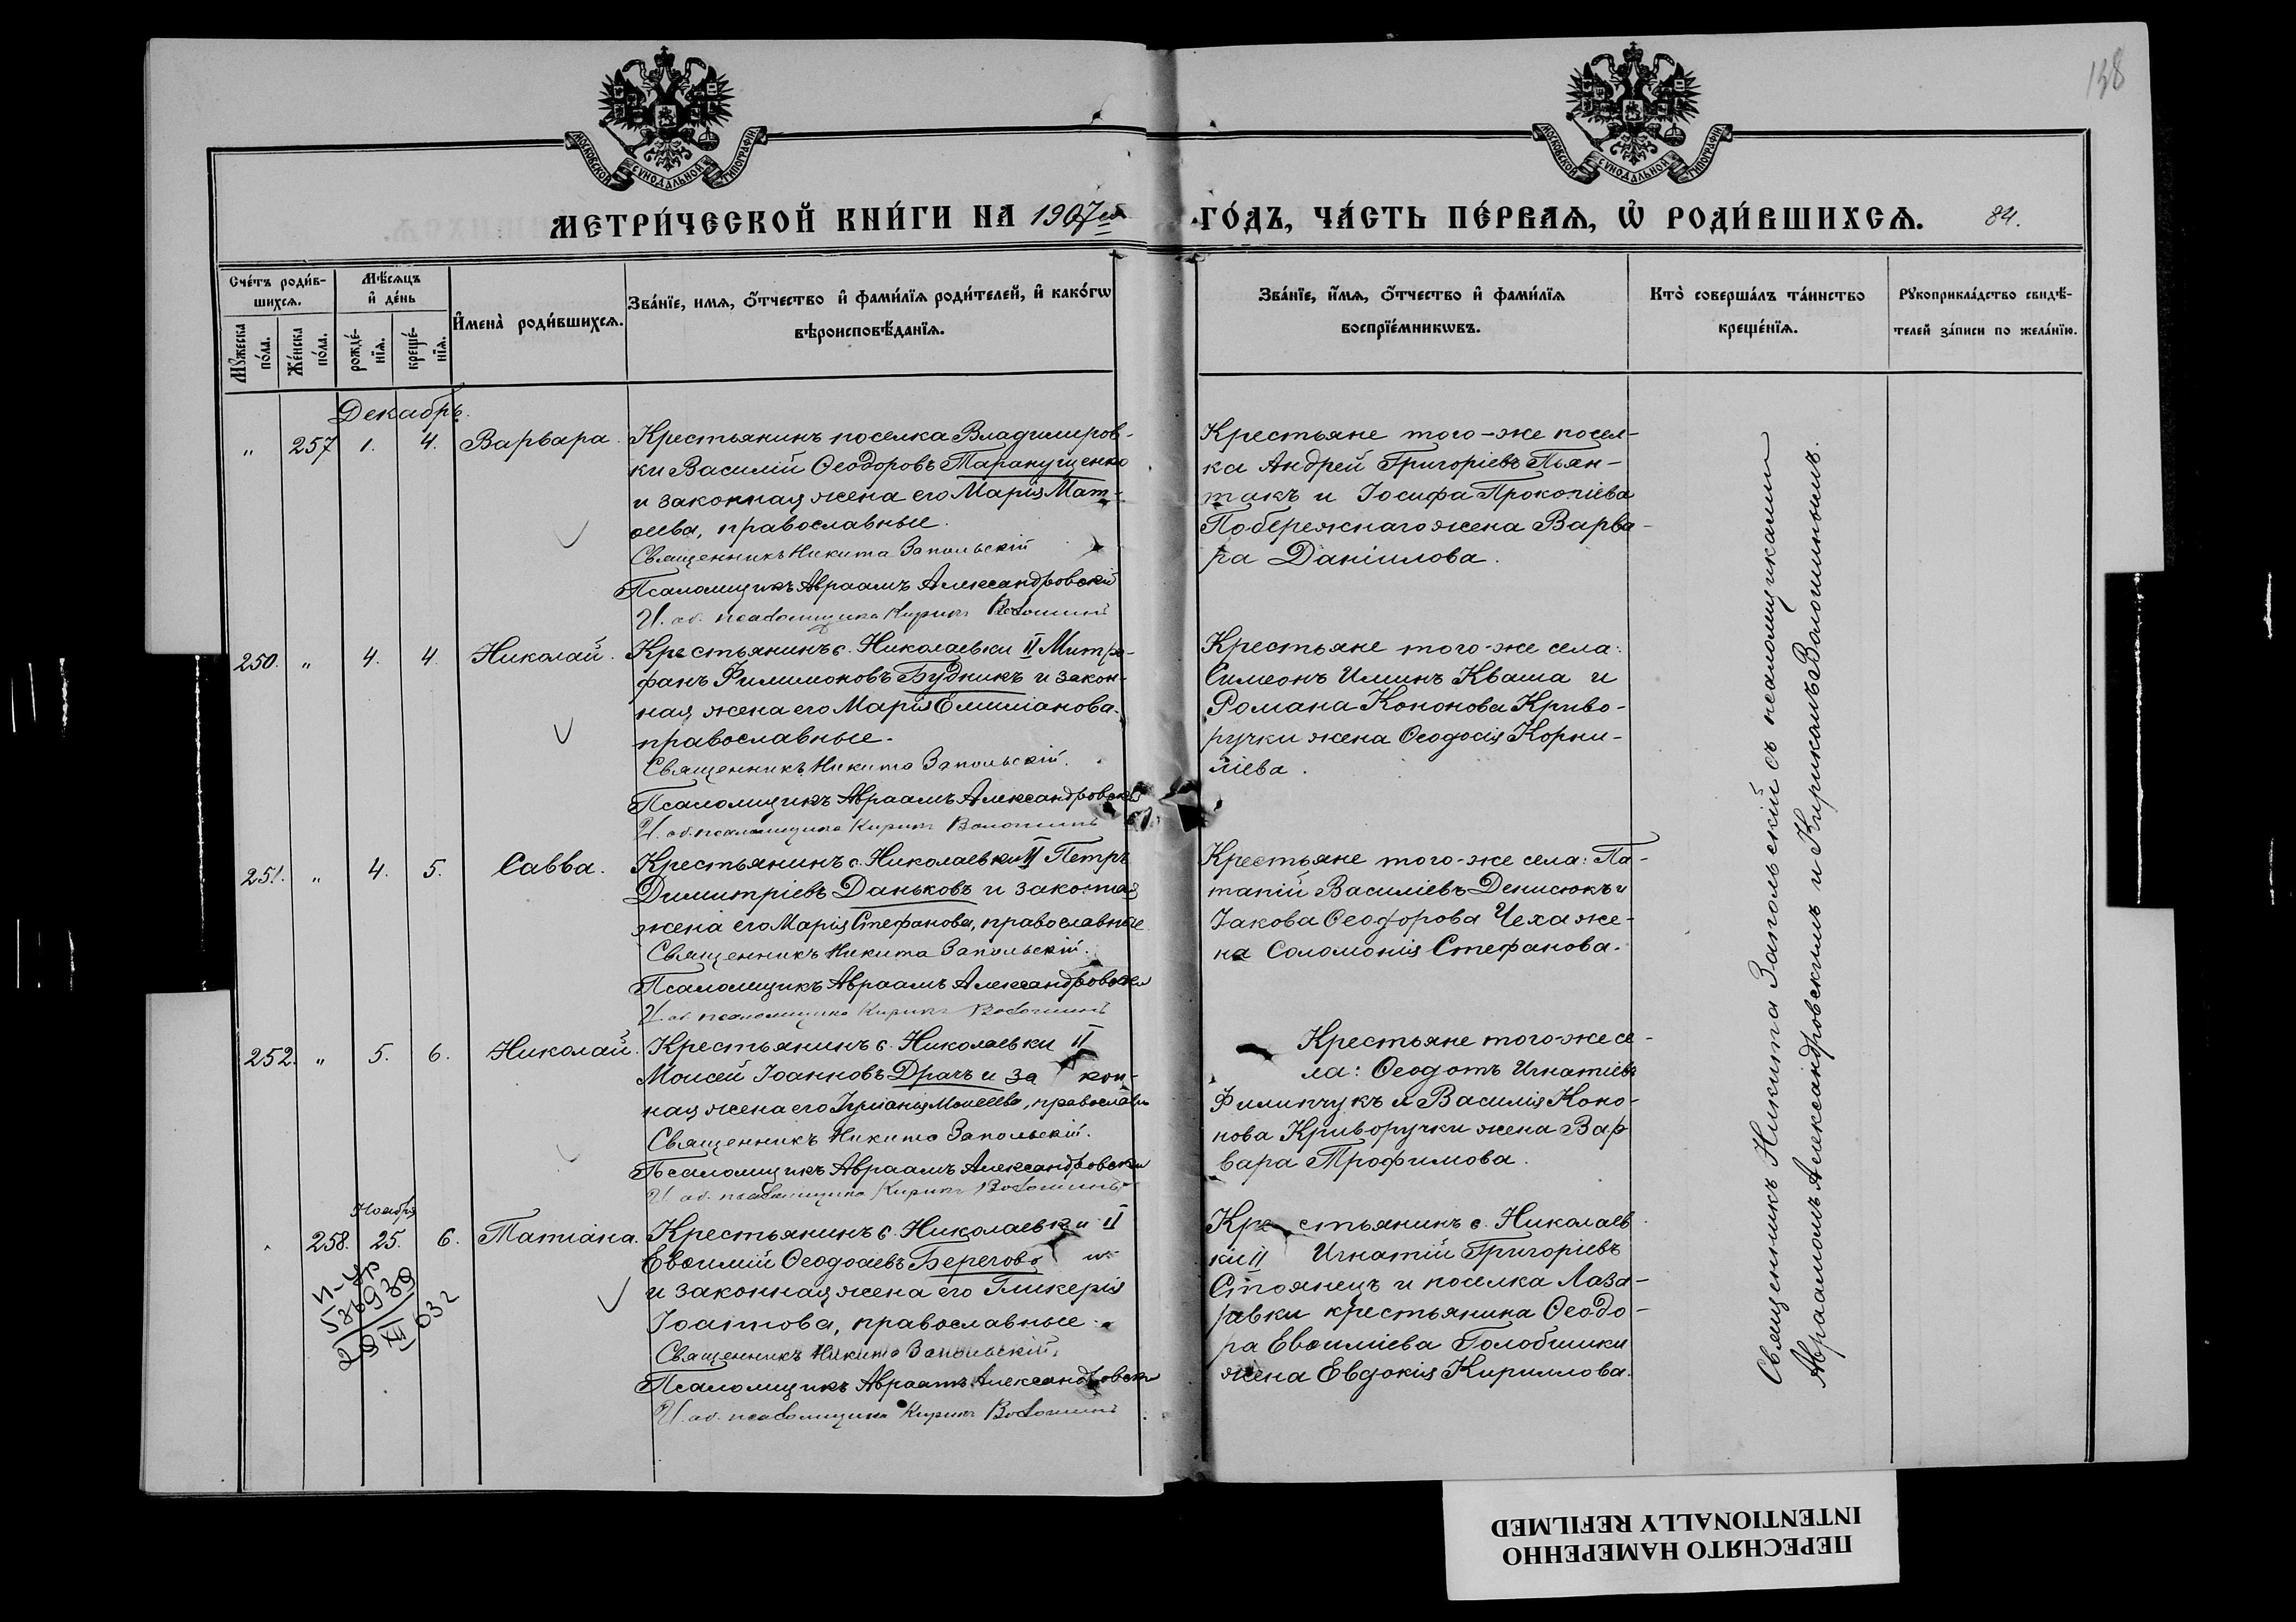 138
МОСКОВСКОЙ СУНОДАЛЬНОЙ ТИПОГРАФІИ
МОСКОВСКОЙ СУНОДАЛЬНОЙ ТИПОГРАФІИ
МЕТРИ́ЧЕСКОЙ КНИ́ГИ НА 1907й ГО́ДЪ, ЧА́СТЬ ПЕ́РВАѦ, Ѡ҆ РОДИ́ВШИХСѦ. 84.
Сче́тъ роди́в-
шихсѧ.
Мѣ́сѧцъ
и҆ де́нь
Мꙋ́жеска
по́ла.
Же́нска
по́ла.
рожде́-
нїѧ.
креще́-
нїѧ.
И҆мена̀ роди́вшихсѧ.
Зва́нїе, имѧ, ѻ҆́тчество и҆ фами́лїѧ роди́телей, и҆ како́гѡ
вѣроисповѣ́данїѧ.
Зва́нїе, и҆́мѧ, ѻ҆́тчество и҆ фами́лїѧ
воспрїе́мникѡвъ.
Кто̀ соверша́лъ та́инство
креще́нїѧ.
Рꙋкоприкла́дство свидѣ́-
телей за́писи по жела́нїю.
Декабрь.
" 257 1. 4. Варвара.
Крестьянинъ поселка Владимиров-
ки Василій Ѳеодоровъ Таранущенко
и законная жена его Марія Мат-
ѳеева, православные.
Священникъ Никита Запольскій
Псаломщикъ Авраамъ Александровскій
И. об. псаломщика Кирикъ Волошинъ
Крестьяне того-же посел-
ка Андрей Григоріевъ Пьян-
такъ и Іосифа Прокопіева
Побережнаго жена Варва-
ра Даніилова.
250. " 4. 4. Николай.
Крестьянинъ с. Николаевки II Митро-
фанъ Филимоновъ Будникъ и закон-
ная жена его Марія Емиліанова.
православные.
Священникъ Никита Запольскій.
Псаломщикъ Авраамъ Александровскій
И. об. псаломщика Кирикъ Волошинъ
Крестьяне того-же села:
Симеонъ Иминъ Кваша и
Романа Кононова Криво-
ручки жена Ѳеодосія Корни-
ліева.
251. " 4. 5. Савва.
Крестьянинъ с. Николаевки II Петръ
Димитріевъ Даньковъ и законная
жена его Марія Стефанова, православные
Священникъ Никита Запольскій.
Псаломщикъ Авраамъ Александровскій
И. об. псаломщика Кирикъ Волошинъ
Крестьяне того-же села: Па-
тапій Василіевъ Денисюкъ и
Іакова Ѳеодорова Чеха же-
на Соломонія Стефанова.
252. " 5. 6. Николай.
Крестьянинъ с. Николаевки II
Моисей Іоанновъ Драчъ и закон-
ная жена его Іуліанія Моисеева, православн
Священникъ Никита Запольскій.
Псаломщикъ Авраамъ Александровскій
И. об. псаломщика Кирикъ Волошинъ
Крестьяне того-же се-
ла: Ѳеодотъ Игнатіевъ
Филипчукъ и Василія Коно-
нова Криворучки жена Вар
вара Трофимова.
Ноября
258. 25. 6. Татіана.
Крестьянинъ с. Николаевки II
Евѳимій Ѳеодосіевъ Берегово й
и законная жена его Гликерія
Іоаннова, православные.
Священникъ Никита Запольскій.
Псаломщикъ Авраамъ Александровскій
И. об. псаломщика Кирикъ Волошинъ
Крестьянинъ с. Николаев
ки II Игнатій Григоріевъ
Стоянецъ и поселка Лаза-
равки крестьянина Ѳеодо-
ра Евѳиміева Голобшики
жена Евдокія Кириллова.
Священникъ Никита Запольскій съ псаломщиками
Авраамомъ Александровскимъ и Кирикомъ Волошинымъ.
ПЕРЕСНЯТО НАМЕРЕННО
INTENTIONALLY REFILMED